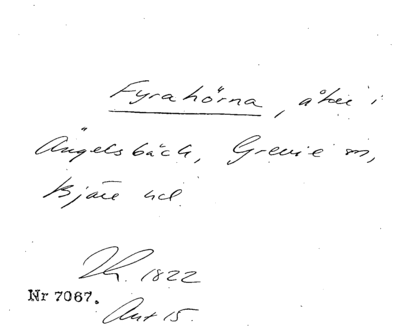 Fyrahörna, åker i
Ängelsbäck, Grevie sn,
Bjäre hd.
Lh. 1822
Nr 7067.
Akt 15.